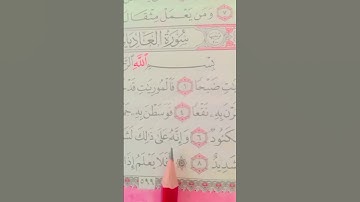 ٧ وَمَن يَعْمَلْ مِثْقَالَ
سُورَةُ العَادِيَاتِ
بِسْمِ ٱللَّهِ
ضَبْحًا ١ فَٱلْمُورِيَٰتِ قَدْ
بِهِۦ نَقْعًا ٤ فَوَسَطْنَ بِهِۦ
لَكَنُودٌ ٦ وَإِنَّهُۥ عَلَىٰ ذَٰلِكَ
٨ ۞ أَفَلَا يَعْلَمُ إِذَا
٥٩٩